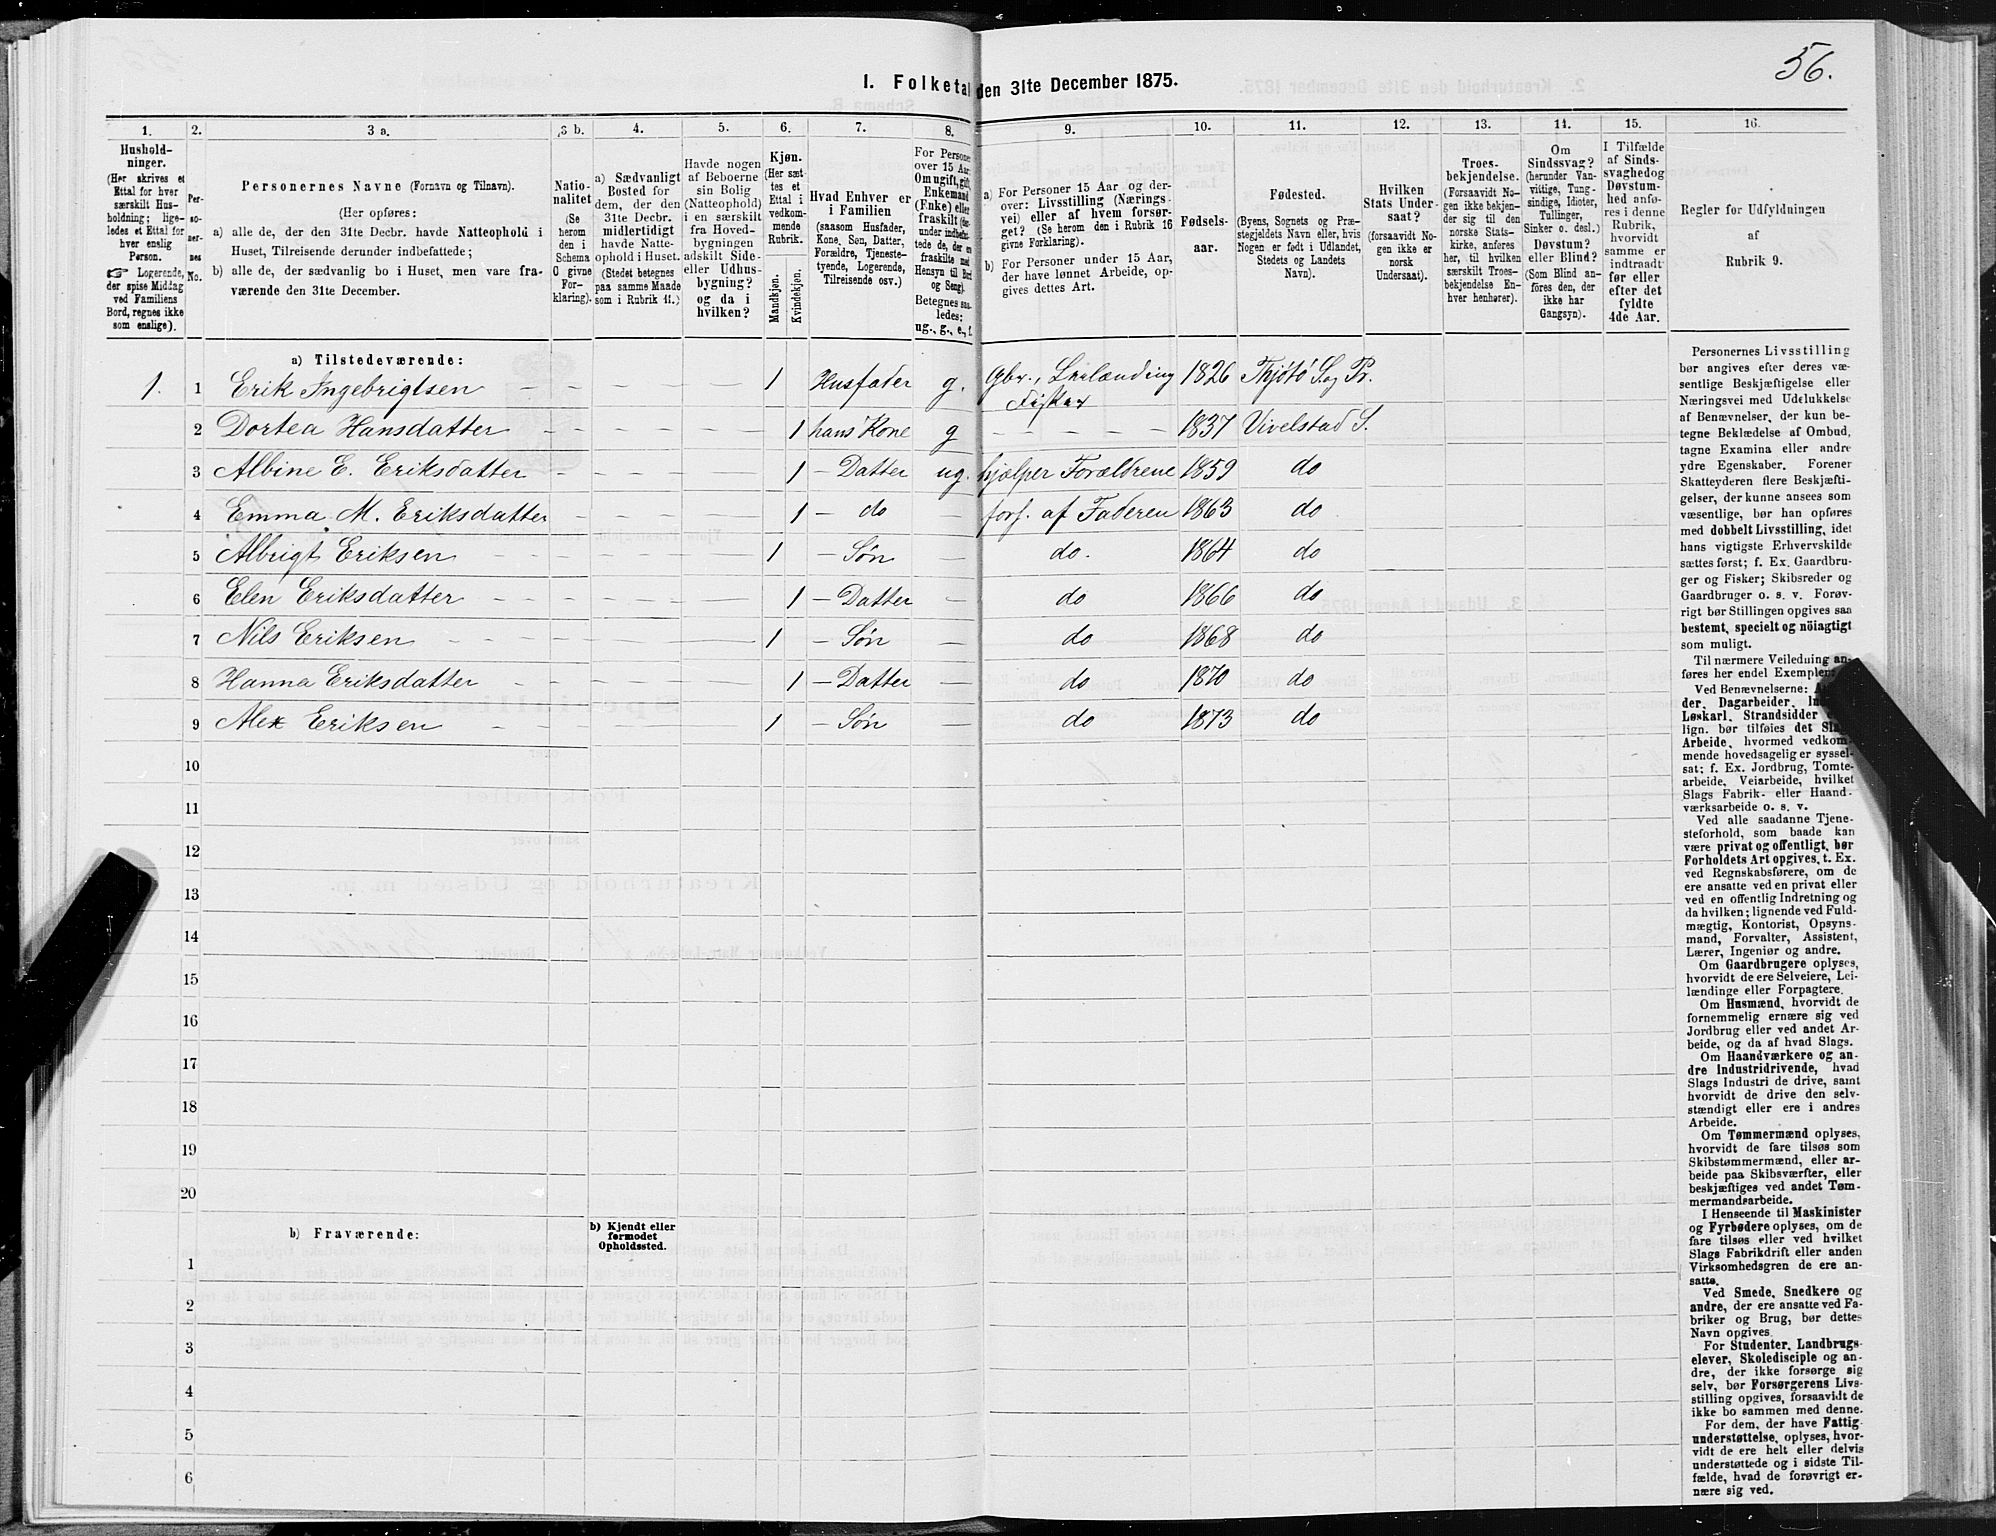 56.
I. Folketal den 31te December 1875.
1. 2. 3 a. 3 b. 4. 5. 6. 7. 8. 9. 10. 11. 12. 13. 14. 15. 16.
Hushold-
ninger.
(Her skrives et
Ettal for hver
særskilt Hus-
holdning; lige-
ledes et Ettal for
hver enslig
Person.
☞ Logerende,
der spise Middag
ved Familiens
Bord, regnes ikke
som enslige).
Per-
so-
ner-
nes
No.
Personernes Navne (Fornavn og Tilnavn).
(Her opføres:
a) alle de, der den 31te Decbr. havde Natteophold i
Huset, Tilreisende derunder indbefattede;
b) alle de, der sædvanlig bo i Huset, men vare fra-
værende den 31te December.
Natio-
nalitet
(Se
herom
den i
Schema
C givne
For-
klaring).
a) Sædvanligt
Bosted for
dem, der den
31te Decbr.
midlertidigt
havde Natte-
ophold i Huset.
(Stedet betegnes
paa samme Maade
som i Rubrik 11.)
Havde nogen
af Beboerne
sin Bolig
(Natteophold)
i en særskilt
fra Hoved-
bygningen
adskilt Side-
eller Udhus-
bygning?
og da i
hvilken?
Kjøn.
(Her sæt-
tes et
Ettal i
vedkom-
mende
Rubrik.
Mandkjøn.
Kvindekjøn.
Hvad Enhver er
i Familien
(saasom Husfader,
Kone, Søn, Datter,
Forældre, Tjeneste-
tyende, Logerende,
Tilreisende osv.)
For Personer
over 15 Aar:
Om ugift, gift,
Enkemand
(Enke) eller
fraskilt (her-
under indbefat-
tede de, der ere
fraskilte med
Hensyn til Bord
og Seng).
Betegnes saa-
ledes:
ug., g., e., f.
a) For Personer 15 Aar og der-
over: Livsstilling (Nærings-
vei) eller af hvem forsør-
get? (Se herom den i Rubrik 16
givne Forklaring).
b) For Personer under 15 Aar,
der have lønnet Arbeide, op-
gives dettes Art.
Fødsels-
aar.
Fødested.
(Byens, Sognets og Præ-
stegjeldets Navn eller, hvis
Nogen er født i Udlandet,
Stedets og Landets
Navn).
Hvilken
Stats Under-
saat?
(forsaavidt No-
gen ikke er
norsk
Undersaat).
Troes-
bekjendelse.
(Forsaavidt No-
gen ikke bekjen-
der sig til den
norske Stats-
kirke, anføres
her, til hvilken
særskilt Troes-
bekjendelse En-
hver henhører).
Om
Sindssvag?
(herunder Van-
vittige, Tung-
sindige, Idioter,
Tullinger,
Sinker o. desl.)
Døvstum?
eller Blind?
(Som Blind an-
føres den, der
ikke har
Gangsyn).
I Tilfælde
af Sinds-
svaghed og
Døvstum-
hed anfø-
res i denne
Rubrik,
hvorvidt
samme er
indtraadt
før eller
efter det
fyldte
4de Aar.
Regler for Udfyldningen
af
Rubrik 9.
a) Tilstedeværende:
1. 1 Erik Ingebrigtsen 1 Husfader g. Gbr., Leilænding 1826 Thjøtø S. og Pr.
Fisker
2 Dortea Hansdatter 1 hans Kone g - - - - 1837 Vivelstad S.
3 Albine E. Eriksdatter 1 - Datter ug. hjælper Forældrene 1859 do
4 Emma M. Eriksdatter 1 - do — fors. af Faderen 1863 do
5 Albrigt Eriksen 1 - Søn — do. 1864 do
6 Elen Eriksdatter 1 - Datter — do 1866 do
7 Nils Eriksen 1 - Søn — do 1868 do
8 Hanna Eriksdatter 1 - Datter — do 1870 do
9 Alex Eriksen 1 - Søn — do 1873 do
10
11
12
13
14
15
16
17
18
19
20
b) Fraværende:
b) Kjendt eller
formodet
Opholdssted.
1
2
3
4
5
6
Personernes Livsstilling
bør angives efter deres væ-
sentlige Beskjæftigelse eller
Næringsvei med Udelukkelse
af Benævnelser, der kun be-
tegne Beklædelse af Ombud,
tagne Examina eller andre
ydre Egenskaber. Forener
Skatteyderen flere Beskjæfti-
gelser, der kunne ansees som
væsentlige, bør han opføres
med dobbelt Livsstilling, idet
hans vigtigste Erhvervskilde
sættes først; f. Ex. Gaardbru-
ger og Fisker; Skibsreder og
Gaardbruger o. s. v. Forøv-
rigt bør Stillingen opgives saa
bestemt, specielt og nöiagtigt
som muligt.
Til nærmere Veiledning an-
føres her endel Exempler:
Ved Benævnelserne:
der, Dagarbeider,
Løskarl, Strandsidder
lign. bør tilføies det Slags
Arbeide, hvormed vedkom-
mende hovedsagelig er syssel-
sat; f. Ex. Jordbrug, Tomte-
arbeide, Veiarbeide, hvilket
Slags Fabrik- eller Haand-
værksarbeide o. s. v.
Ved alle saadanne Tjene-
steforhold, som baade kan
være privat og offentligt, bør
Forholdets Art opgives, t. Ex.
ved Regnskabsførere, om de
ere ansatte ved en privat eller
ved en offentlig Indretning og
da hvilken; lignende ved Fuld-
mægtig, Kontorist, Opsyns-
mand, Forvalter, Assistent,
Lærer, Ingeniør og andre.
Om Gaardbrugere oplyses,
hvorvidt de ere Selveiere, Lei-
lændinge eller Forpagtere.
Om Husmænd, hvorvidt de
fornemmelig ernære sig ved
Jordbrug eller ved andet Ar-
beide, og da af hvad Slags.
Om Haandværkere og an-
dre Industridrivende, hvad
Slags Industri de drive, samt
hvorvidt de drive den selv-
stændigt eller ere i andres
Arbeide.
Om Tømmermænd oplyses,
hvorvidt de fare tilsøs som
Skibstømmermænd, eller ar-
beide paa Skibsværfter, eller
beskjæftiges ved andet Tøm-
mermandsarbeide.
I Henseende til Maskinister
og Fyrbødere oplyses, om de
fare tilsøs eller ved hvilket
Slags Fabrikdrift eller anden
Virksomhedsgren de ere an-
satte.
Ved Smede, Snedkere og
andre, der ere ansatte ved Fa-
briker og Brug, bør dettes
Navn opgives.
For Studenter, Landbrugs-
elever, Skoledisciple og an-
dre, der ikke forsørge sig
selv, bør Forsørgerens Livs-
stilling opgives, forsaavidt de
ikke bo sammen med denne.
For dem, der have Fattig-
understøttelse, oplyses, hvor-
vidt de ere helt eller delvis
understøttede og i sidste Til-
fælde, hvad de forøvrigt er-
nære sig ved.